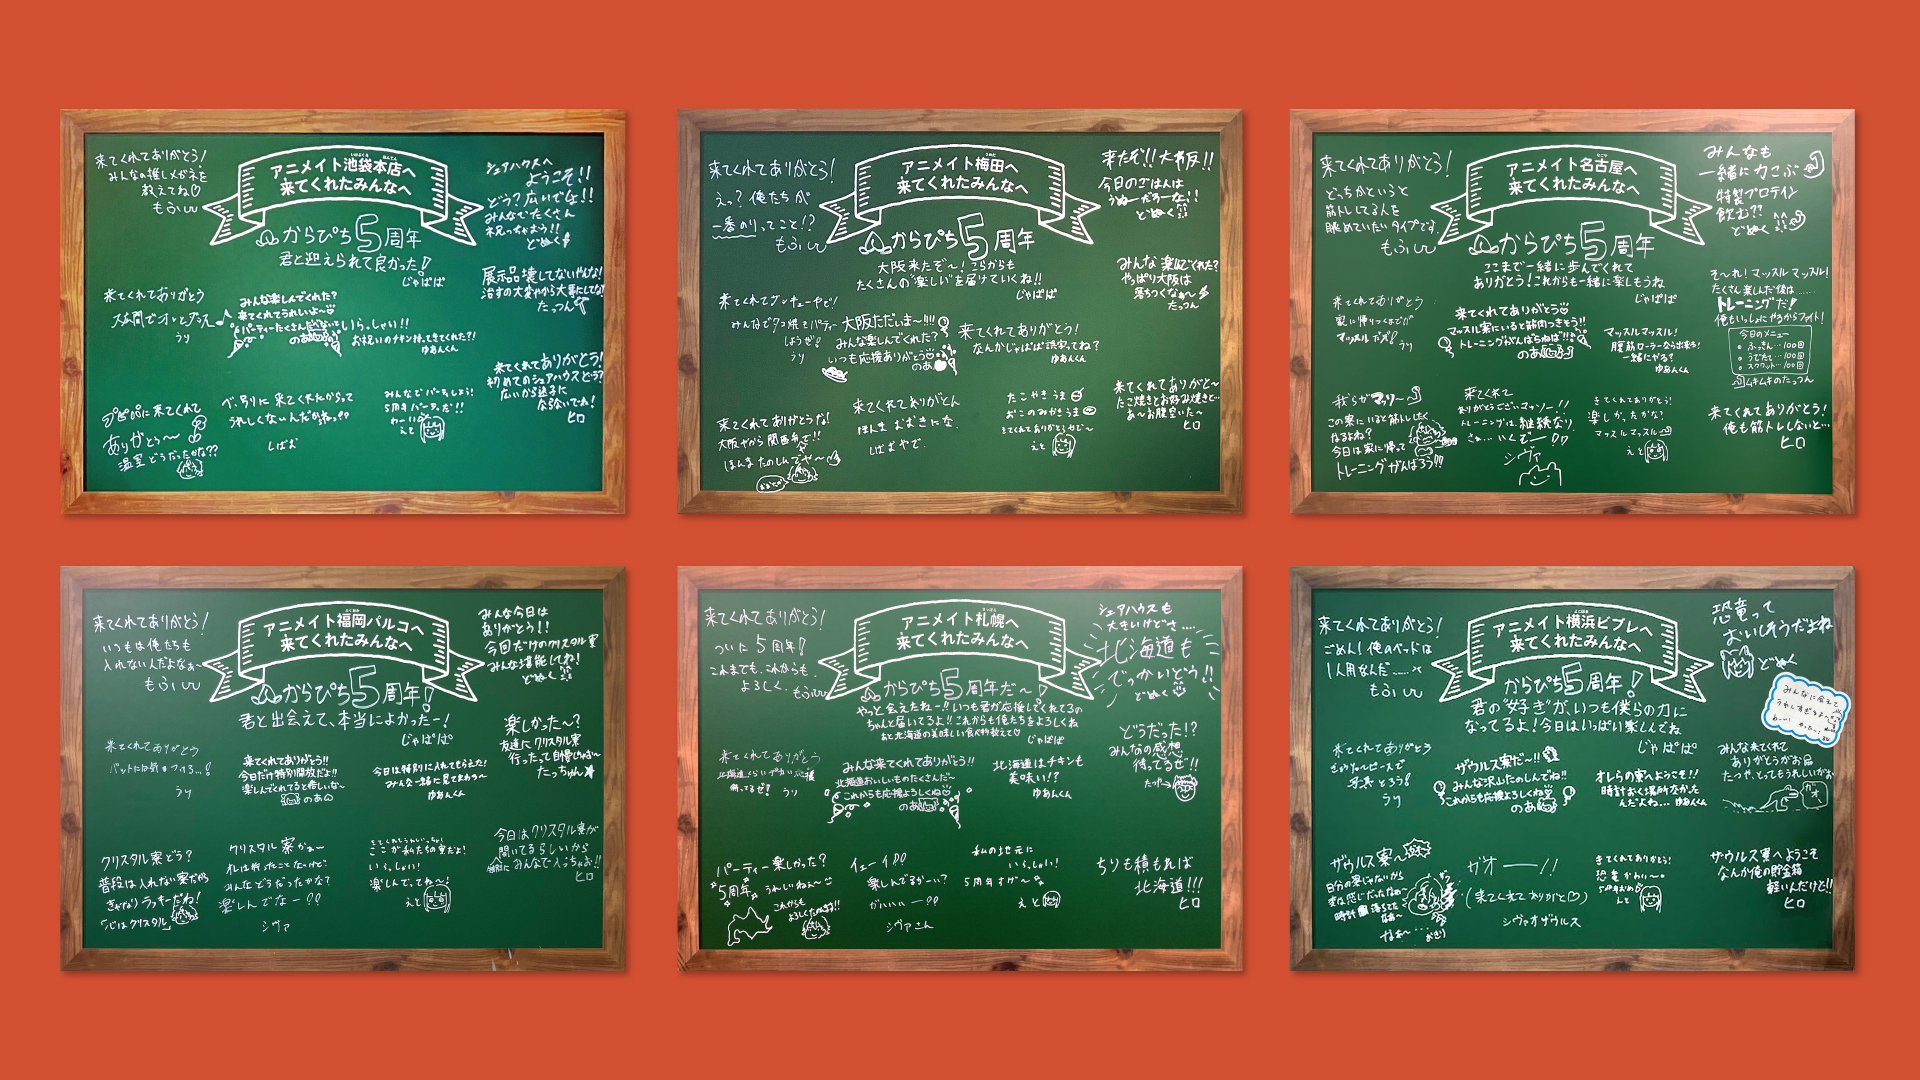 アニメイト池袋本店へ
来てくれたみんなへ
からぴち5周年
君と迎えられて良かった!
じゃぱぱ
来てくれてありがとう!
みんなの推しメガネを
教えてね♡
もふ
シェアハウスへ
ようこそ!!
どう?広いでしょ!!
みんなでたくさん
祝っちゃおう!!
どぬく
展示品壊してないやんな!
治すの大変やから大事にしてな!
たっつん
来てくれてありがとう
うり
みんな楽しんでくれた?
来てくれてうれしいよ〜
パーティーたくさん
のあ
いらっしゃい!!
お祝いのチキン持ってきてくれた?!
ゆあんくん
来てくれてありがとう!
初めてのシェアハウスどう?
広いから迷子に
ならないでね!
ヒロ
に来てくれて
ありがとう〜
温室どうだったかな??
べ、別に来てくれたからって
うれしくないんだからね??
しばお
みんなでパーティしよう!
5周年パーティだ!!
わーい
えと
アニメイト梅田へ
来てくれたみんなへ
からぴち5周年
大阪来たぞ〜!これからも
たくさんの"楽しい"を届けていくね!!
じゃぱぱ
来てくれてありがとう!
えっ?俺たちが
一番のりってこと!?
もふ
来たぞ!!大阪!!
今日のごはんは
どぬく
みんな楽しんでくれた?
やっぱり大阪は
落ちつくなぁ〜
たっつん
来てくれてサンキューやで!
みんなでタコ焼きパーティー
しようぜ!
うり
大阪ただいま〜!!!
みんな楽しんでくれた?
いつも応援ありがとう♡
のあ
来てくれてありがとう!
なんかじゃぱぱ読字ってね?
ゆあんくん
来てくれてありがと〜
たこ焼きとお好み焼きと…
あ〜お腹空いた〜
ヒロ
来てくれてありがとうな!
大阪やから関西弁で!!
ほんまたのしんでや〜
来てくれてありがとん
ほんま おおきにな.
しばおやで.
たこやきうま
おこのみやきうま
きてくれてありがとやで〜
えと
アニメイト名古屋へ
来てくれたみんなへ
からぴち5周年
ここまで一緒に歩んでくれて
ありがとう!これからも一緒に楽しもうね
じゃぱぱ
来てくれてありがとう!
どっちかというと
筋トレしてる人を
眺めていたいタイプです.
もふ
みんなも
一緒に力こぶ
特製プロテイン
飲む??
どぬく
そ〜れ!マッスルマッスル!
たくさん楽しんだ後は……
トレーニングだ!
俺もいっしょにやるからファイト!
今日のメニュー
ふっきん…100回
うでたて…100回
スクワット…100回
ムキムキのたっつん
来てくれてありがとう
家に帰りつくまでが
マッスルポーズ!
うり
来てくれてありがとう♡
マッスル寮にいると筋肉つきそう!!
トレーニングがんばらねば!!
のあ
マッスルマッスル!
腹筋ローラーなら出来る!
一緒にやる?
ゆあんくん
来てくれてありがとう!
俺も筋トレしないと…
ヒロ
我らがマッソー
この寮にいると筋トレしたく
なるよね?
今日は家に帰って
トレーニングがんばろう!!!
来てくれて
ありがとうございマッソー!!
トレーニングは継続なり
さぁ…いくぞー
シヴァ
きてくれてありがとう!
楽しかったかな?
マッスルマッスル
えと
アニメイト福岡パルコへ
来てくれたみんなへ
からぴち5周年!
君と出会えて、本当によかったー!
じゃぱぱ
来てくれてありがとう!
いつもは俺たちも
入れない人だよなぁ〜
もふ
みんな今日は
ありがとう!!
今日だけのクリスタル寮
みんな堪能してね!
どぬく
楽しかった〜?
友達にクリスタル寮
行ったって自慢しちゃお〜
たっちゃん
来てくれてありがとう
バットには気をつけろ…!
うり
来てくれてありがう!!
今日だけ特別開放だよ!!
楽しんでくれてると嬉しいな〜
のあ
今日は特別に入れてもらえた!
みんな一緒に見てまわろ〜
ゆあんくん
今日はクリスタル寮が
開いてるらしいから
みんなで入っちゃお!!
ヒロ
クリスタル寮どう?
普段は入れない寮だから
かなりラッキーだね!
「心はクリスタル」
クリスタル寮かぁー
オレは行ったことないけど…
みんなどうだったかな?
楽しんでなー!!
シヴァ
ここが私たちの寮だよ!
いらっしゃい!
楽しんでってね〜!
えと
アニメイト札幌へ
来てくれたみんなへ
からぴち5周年だ〜!
やっと会えたねー!!いつも君が応援してくれてるの
ちゃんと届いてるよ!!これからも俺たちをよろしくね
あと北海道の美味しい食べ物教えて♡
じゃぱぱ
来てくれてありがとう!
ついに5周年!
これまでも、これからも、
よろしく.
もふ
シェアハウスも
大きいけどさ……
北海道も
でっかいどう!!
どぬく
どうだった!?
みんなの感想
待ってるぜ!!
たっつん
来てくれてありがとう
北海道くらいデカい応援
待ってるぜ!
うり
みんな来てくれてありがう!!
北海道おいしいものたくさんだ〜
これからも応援よろしくね♡
のあ
北海道はチキンも
美味い!?
ゆあんくん
パーティー楽しかった?
5周年うれしいねぇ〜
これからも
よろしくたのむ!!
イェーイ!!
楽しんでるかーい?
がいいいー!!
シヴァさん
私の地元に
いらっしゃい!
5周年すげ〜
えと
ちりも積もれば
北海道!!!
ヒロ
アニメイト横浜ビブレへ
来てくれたみんなへ
からぴち5周年!
君の"好き"が、いつも僕らの力に
なってるよ!今日はいっぱい楽しんでね
じゃぱぱ
来てくれてありがとう!
ごめん!俺のベッドは
1人用なんだ……
もふ
恐竜って
おいしそうだよね
どぬく
みんなに会えて
うれしすぎるよ〜
みんな来てくれて
ありがとうがお
たつや、とってもうれしいがお
ガオ
来てくれてありがとう
ぎゃおーピースで
写真とろう!
うり
ザウルス寮だ〜!!
みんな沢山たのしんでね!!
これからも応援よろしくね♡
のあ
オレらの寮へようこそ!!
時計おく場所なかった
んだよね…
ゆあんくん
ザウルス寮へようこそ
なんか俺の貯金箱
軽いんだけど!!
ヒロ
ザウルス寮へ
自分の寮じゃないから
時計落ちてた
なぁ〜
ガオーー!!
(来てくれてありがと♡)
シヴァオザウルス
きてくれてありがとう!
恐竜かわい〜
5周年おめ
えと